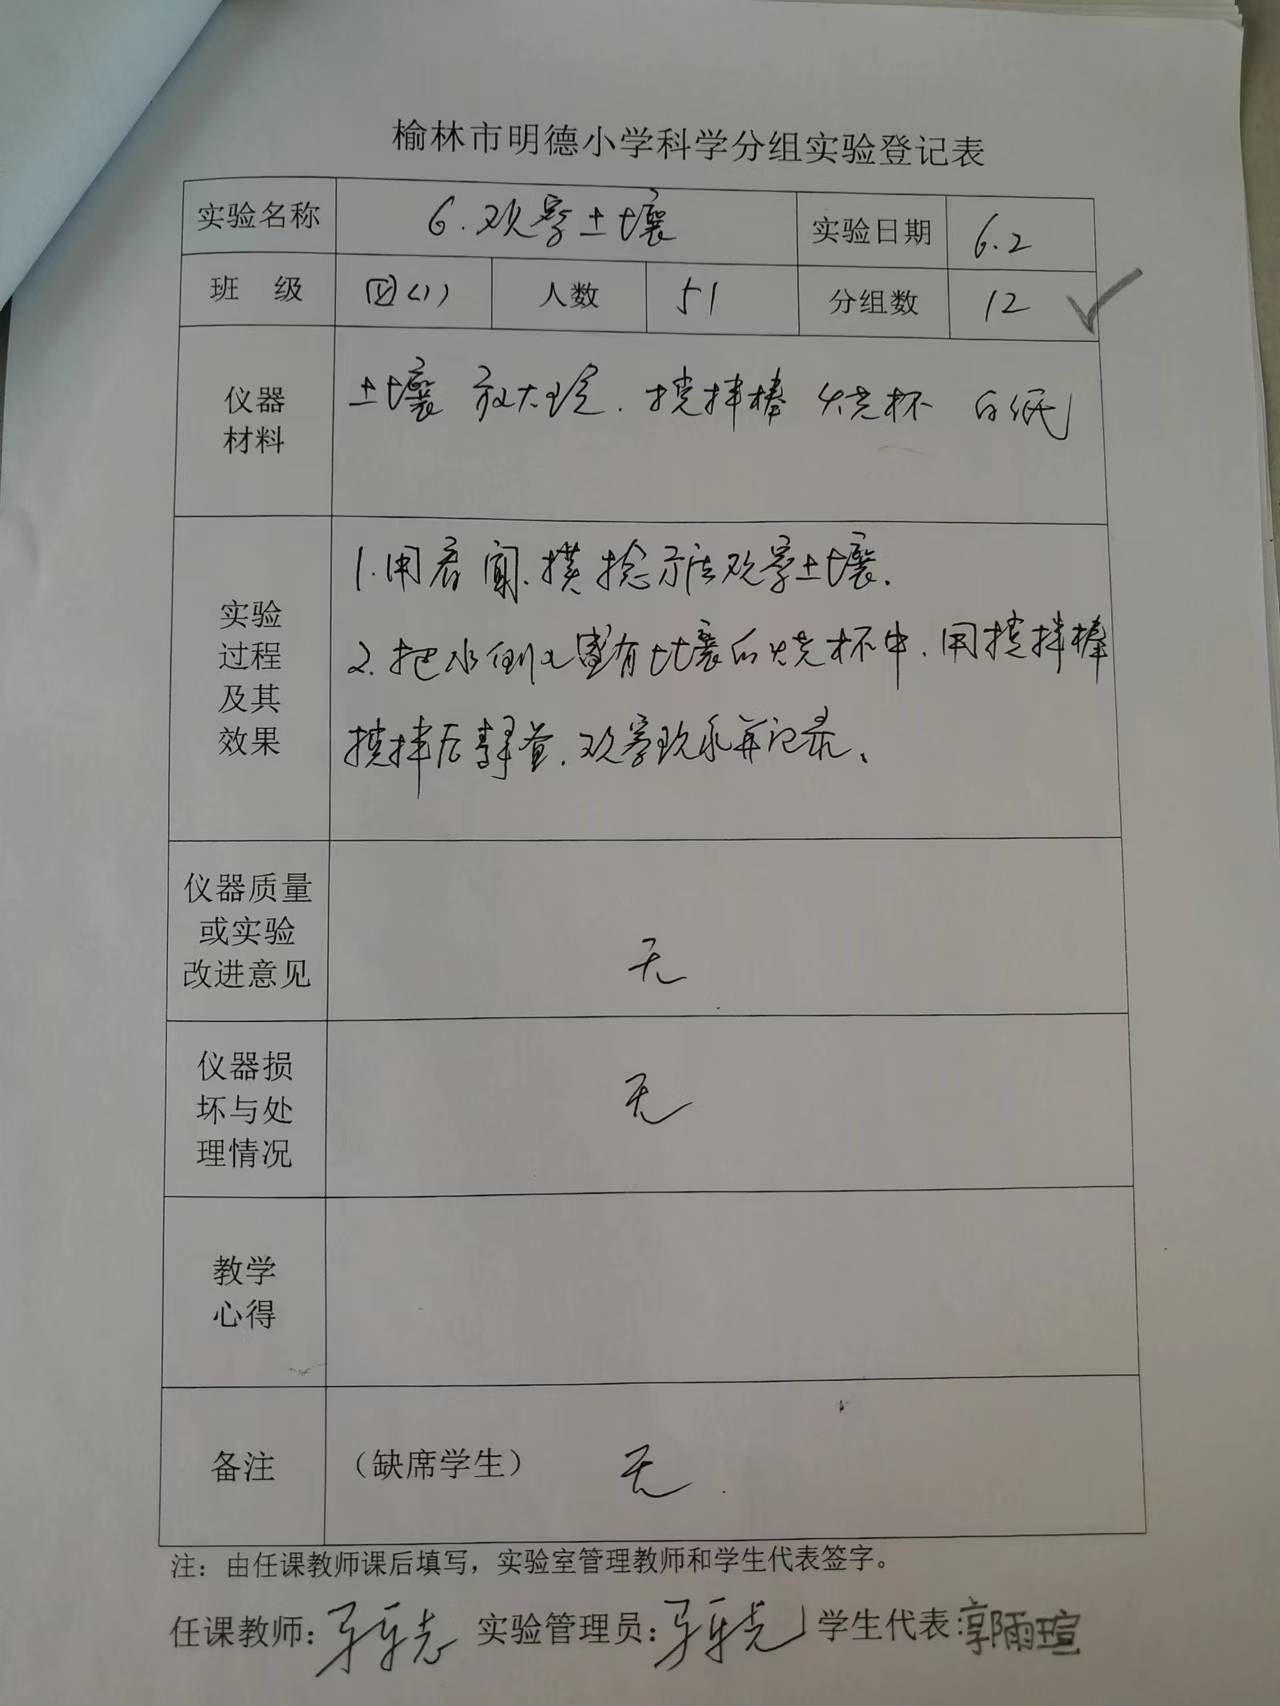 榆林市明德小学科学分组实验登记表
实验名称 6.观察土壤 实验日期 6.2
班 级 四(1) 人数 51 分组数 12
仪器
材料
土壤 放大镜.搅拌棒 烧杯 白纸
实验
过程
及其
效果
1.用看闻.摸捻方法观察土壤.
2.把水倒入盛有土壤的烧杯中.用搅拌棒
搅拌后静置.观察现象并记录。
仪器质量
或实验
改进意见
无
仪器损
坏与处
理情况
无
教学
心得
备注 (缺席学生) 无
注：由任课教师课后填写，实验室管理教师和学生代表签字。
任课教师: 实验管理员: 学生代表:郭雨瑄